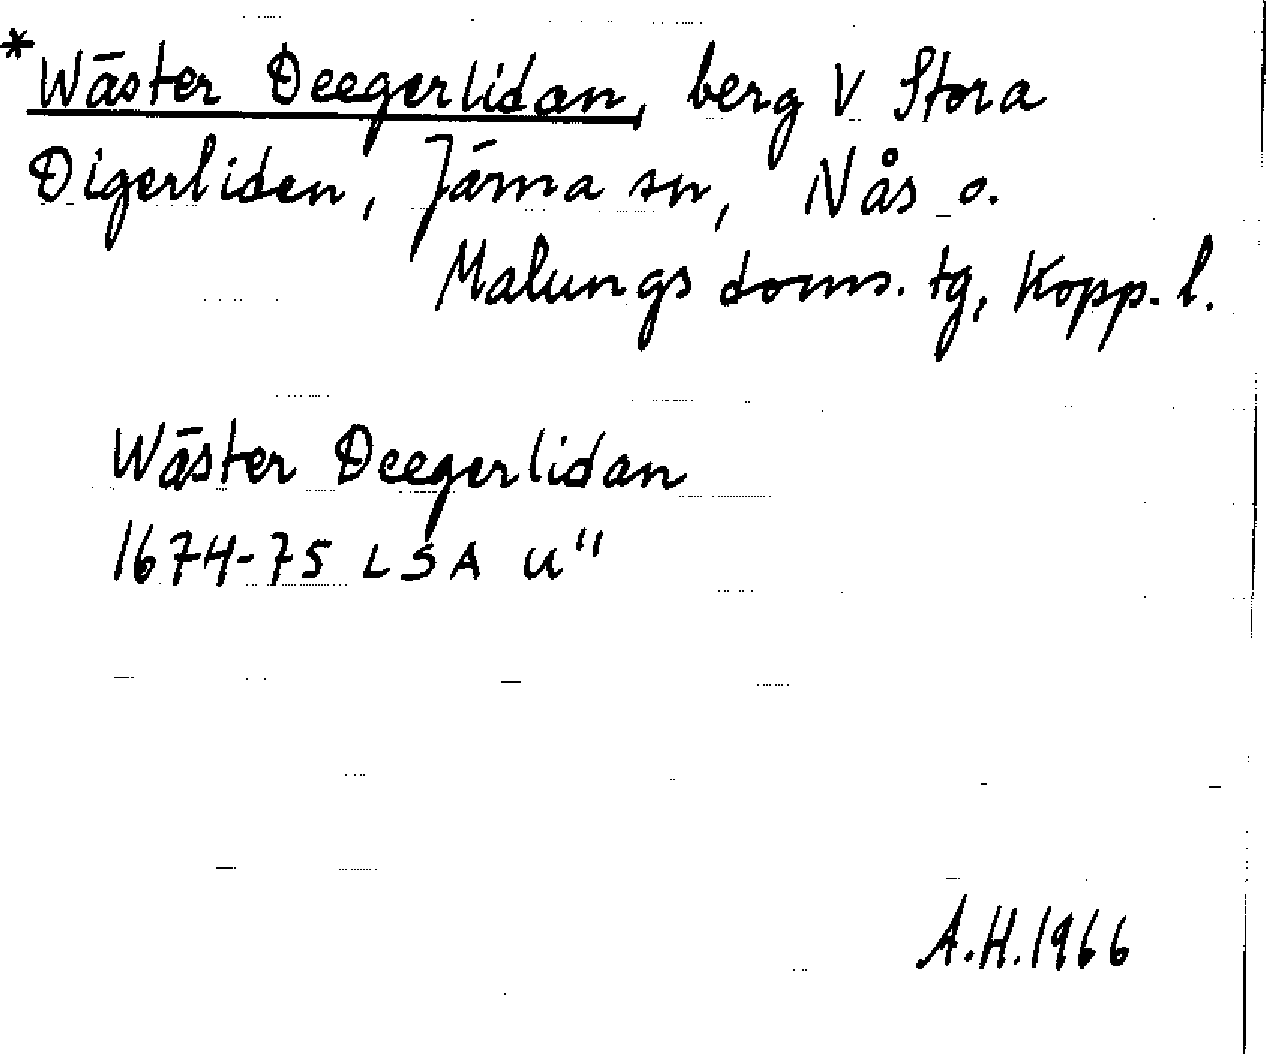 *Wäster Deegerlidan, berg V Stora
Digerliden, Järna sn, Nås o.
Malungs doms. tg, Kopp. l.
Wäster Deegerlidan
1674-75 LSA U"
A.H. 1966